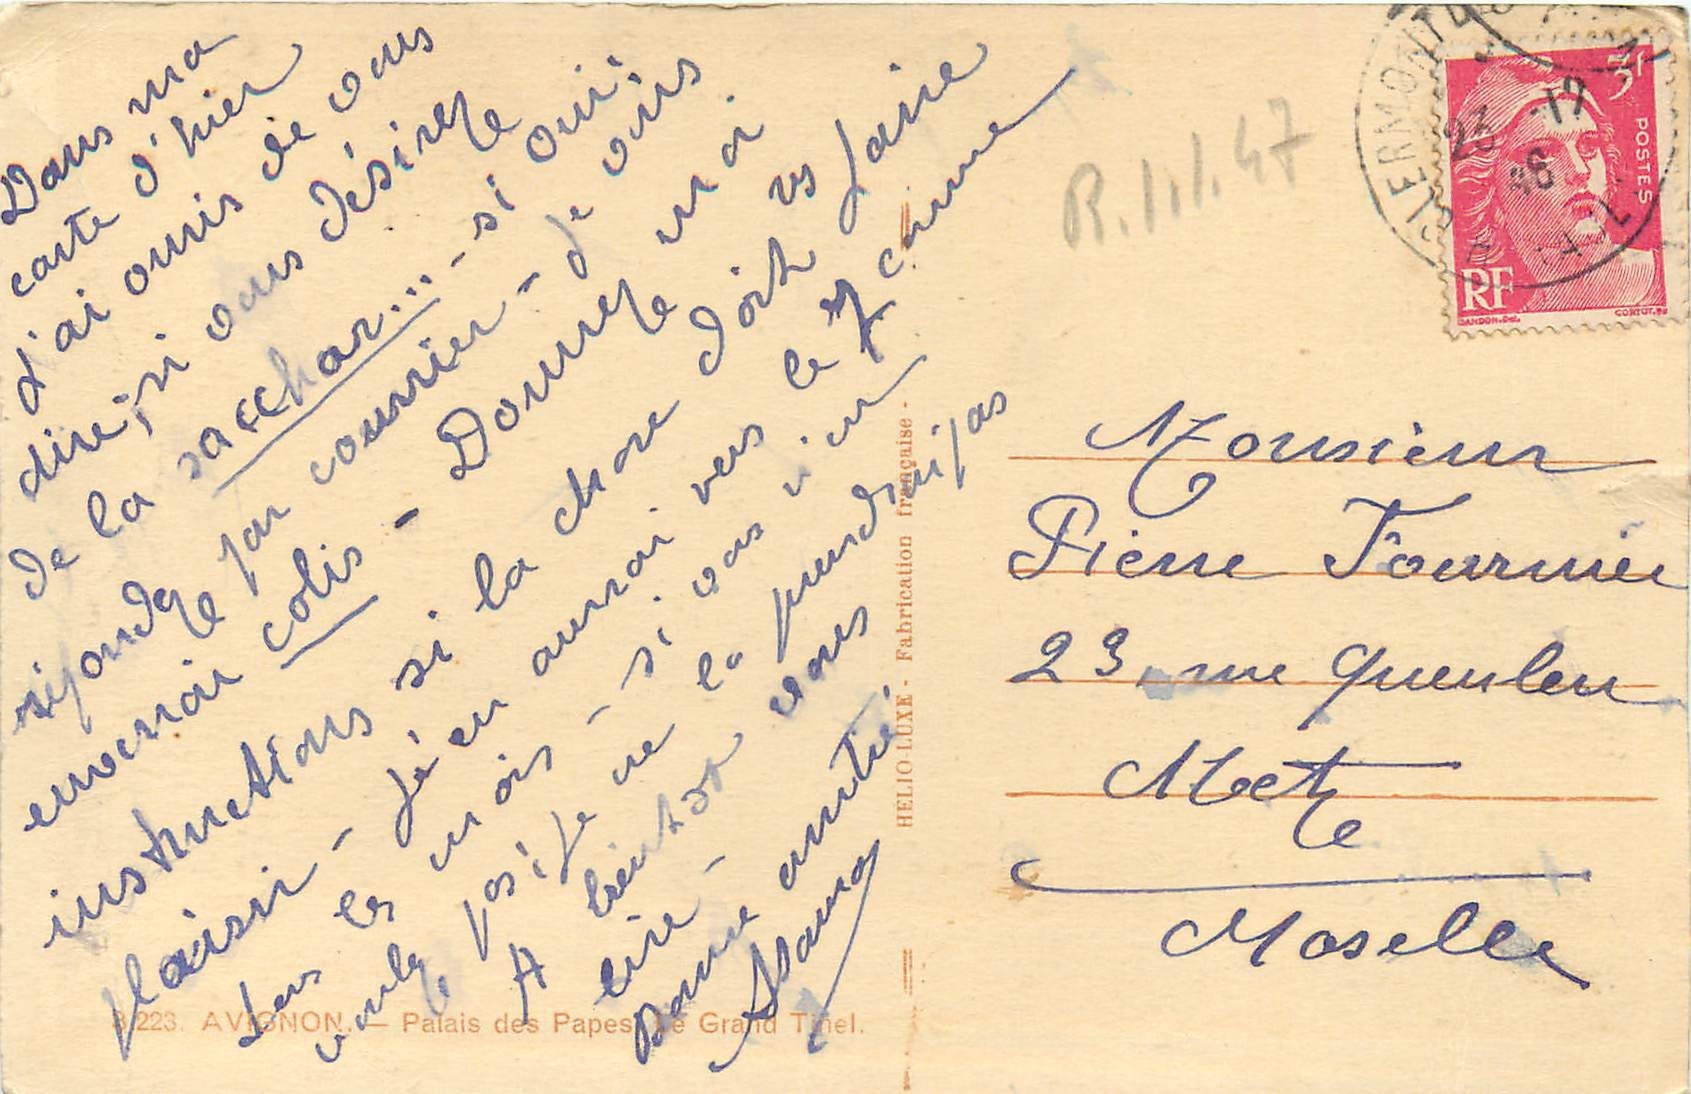 Dans ma
carte d'hier
j'ai omis de vous
dire, si vous désirez
de la sacchar... - si oui
répondez par courrier - je vous
enverrai colis - Donnez moi
instructions si la chose doit vs faire
plaisir - J'en aurai vers le 7 comme
tous les mois - si vous n'en
voulez pas je ne la prendrai pas
A bientôt vous
lire -
Bonne amitié
R.1.1.47
CLERMONT
23 -17
46
3F
POSTES
RF
GANDON.Del.
CORTOT.sc
Monsieur
Pierre Fournier
23, rue Queuleu
Metz
Moselle
HELIO-LUXE - Fabrication française -
8.223. AVIGNON. — Palais des Papes. Le Grand Tinel.